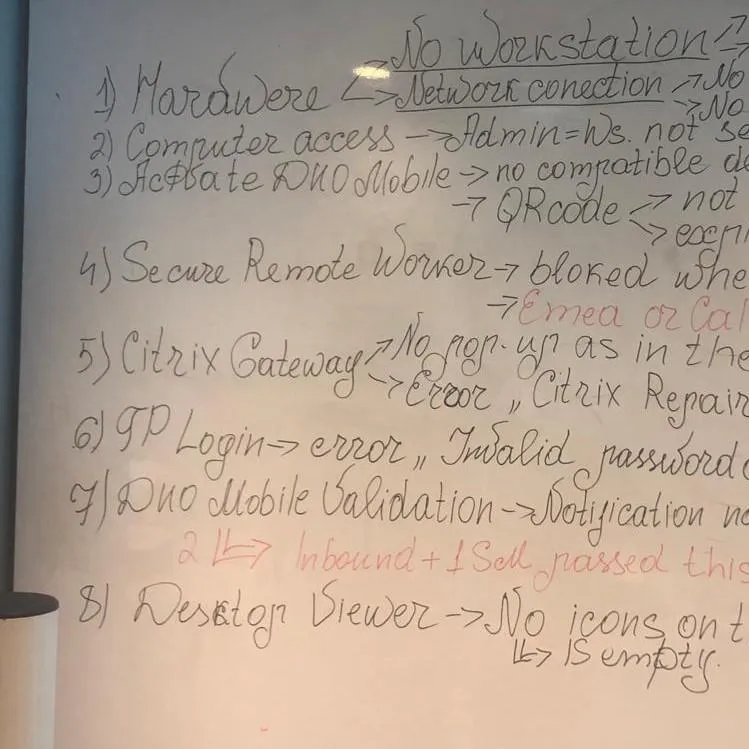 No Workstation ↗
1) Hardwere <→ Network conection ↗ No
→ No
2) Computer access → Admin = Ws. not se
3) Activate DUO Mobile → no compatible de
→ QR code ↗ not
4) Secure Remote Worker → bloked whe
→ Emea or Cal
5) Citrix Gateway ↗ No pop-up as in the
→ Error „Citrix Repair
6) GP Login → error „Invalid password
7) DUO Mobile Validation → Notification no
2 ↳ Inbound + 1 Sell passed this
8) Desktop Viewer → No icons on t
↳ IS empty.